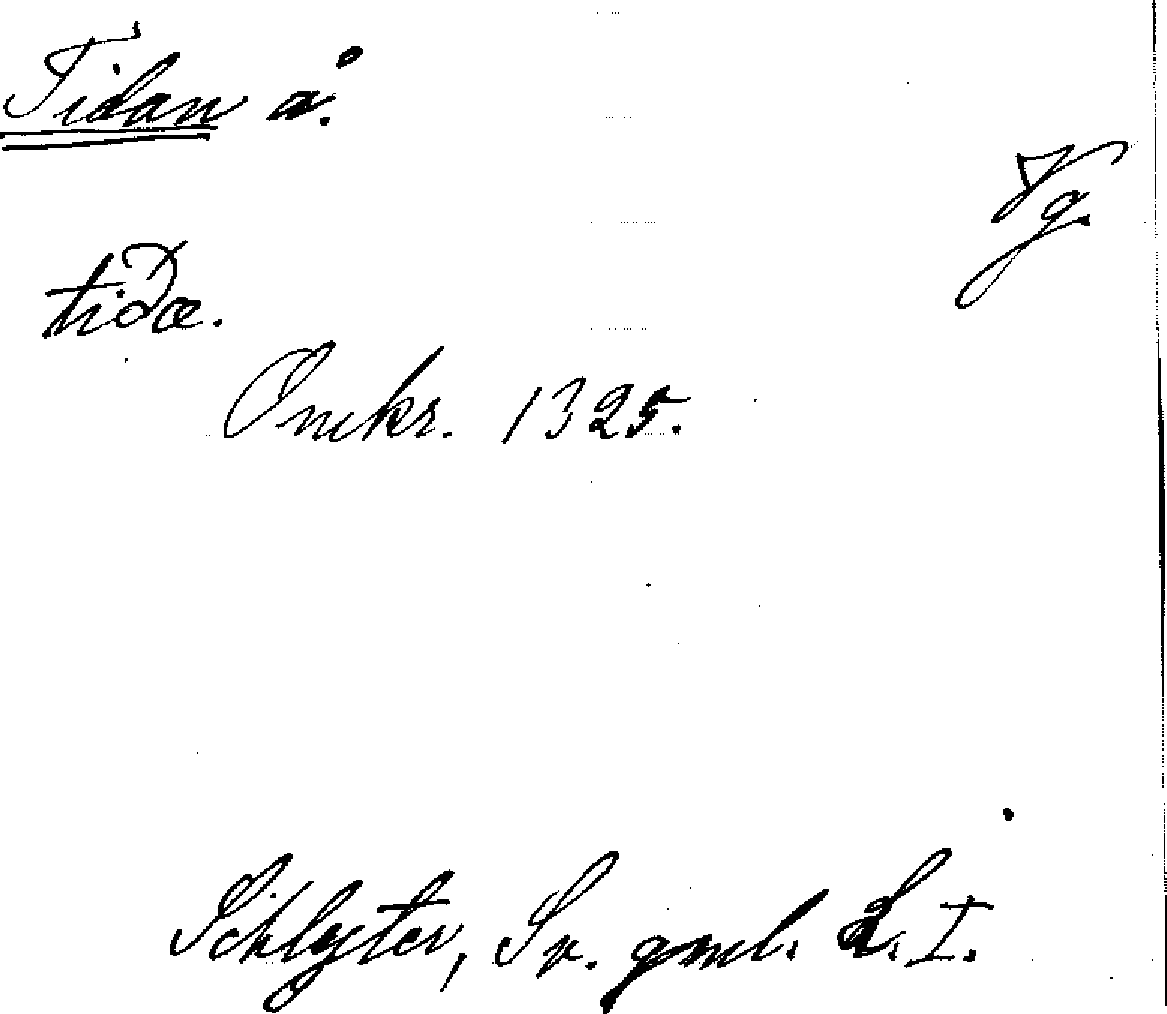 Tidan å.
Vg.
tiđæ.
Omkr. 1325.
Schlyter, Sv. gml. L. I.